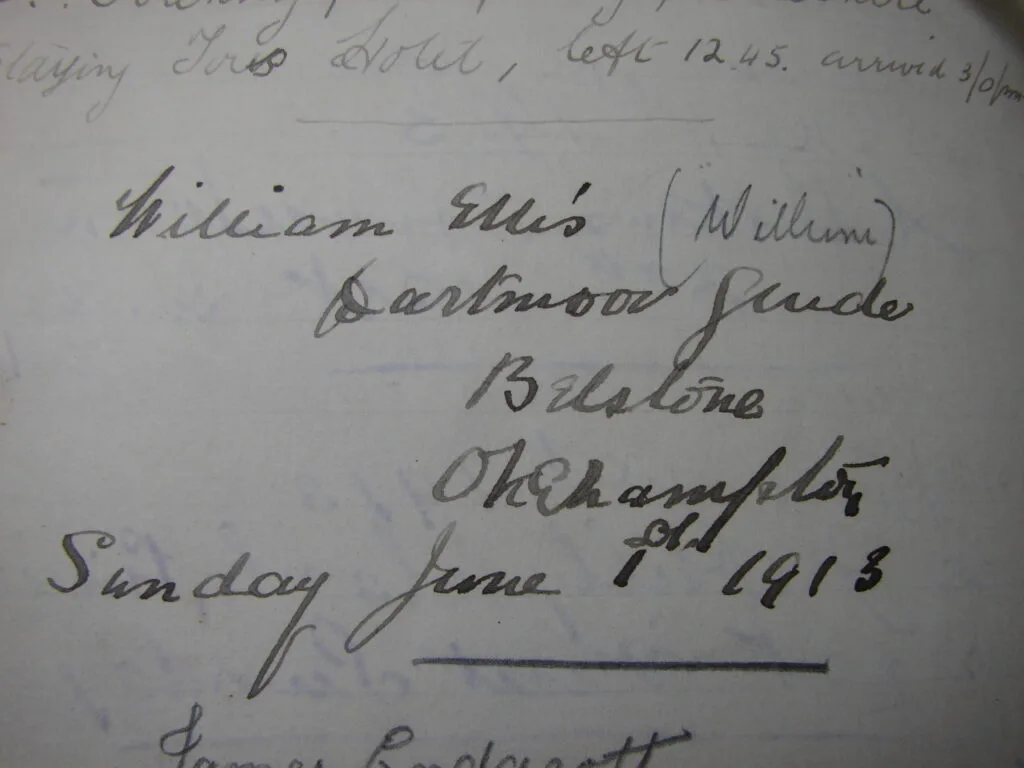 staying Tors Hotel, left 12.45. arrived 3/0/pm
William Ellis (William)
Dartmoor Guide
Belstone
Okehampton
Sunday June 1st 1913
James Endacott